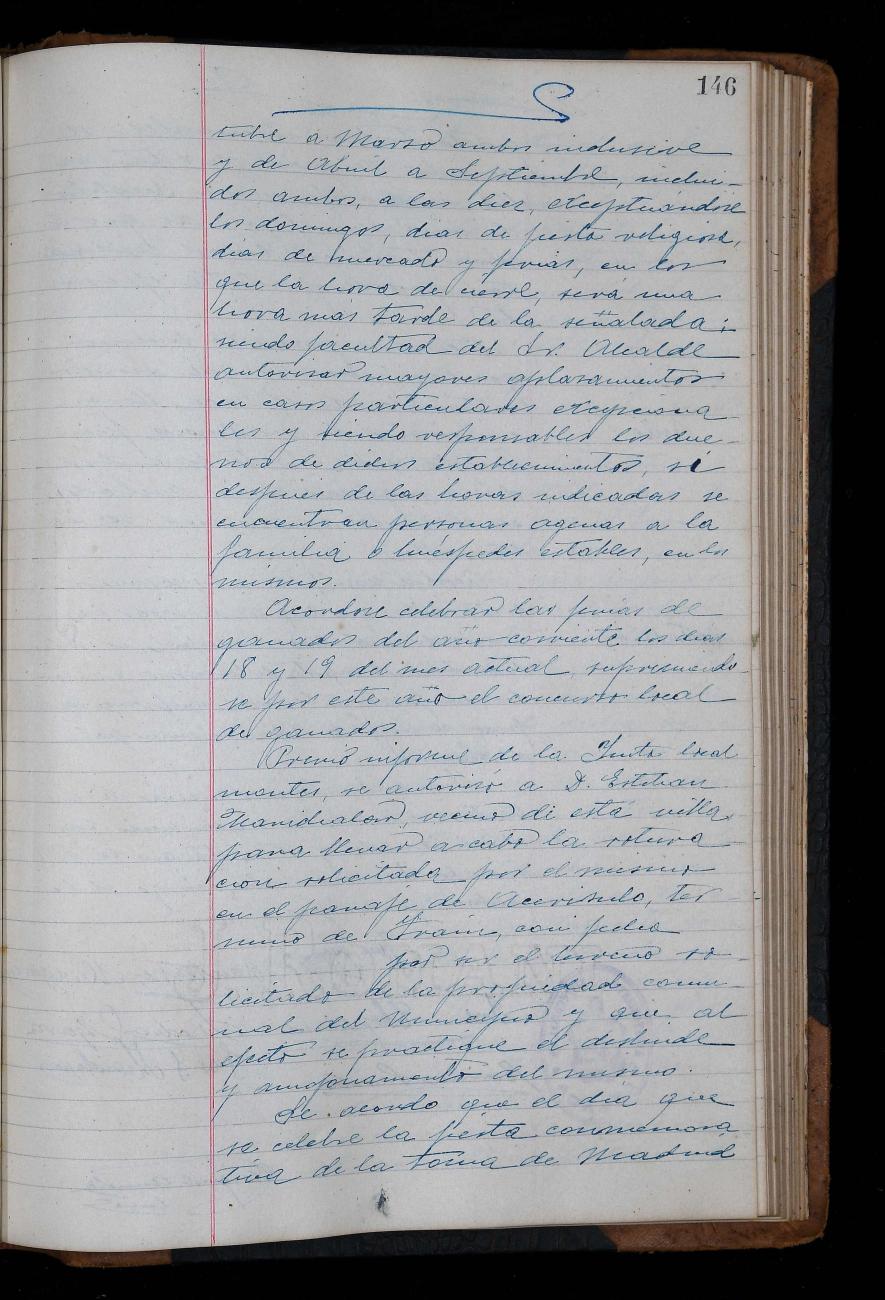 146
tubre a Marzo ambos inclusive
y de Abril a Septiembre, inclui-
dos ambos, a las diez, exceptuándose
los domingos, dias de fiesta religiosa,
dias de mercado y ferias, en los
que la hora de cierre, será una
hora más tarde de la señalada;
siendo facultad del Sr. Alcalde
autorisar mayores aplasamientos
en casos particulares excepciona
les y siendo responsables los due-
ños de dichos establecimientos, si
despues de las horas indicadas se
encuentran personas agenas a la
familia o huéspedes estables, en los
mismos.
Acordose celebrar las ferias de
ganados del año corriente los dias
18 y 19 del mes actual, suprimiendo
se por este año el concurso local
de ganados.
Previo informe de la Junta local
montes, se autorizó a D. Esteban
vecino de esta villa,
para llevar a cabo la rotura
ción solicitada por el mismo
en el paraje de ter
mino de con fecha
por ser el terreno so-
licitado de la propiedad comu-
nal del Municipio y que al
efecto se practique el deslinde
y amojonamiento del mismo.
Se acordo que el dia que
se celebre la fiesta conmemora
tiva de la toma de Madrid